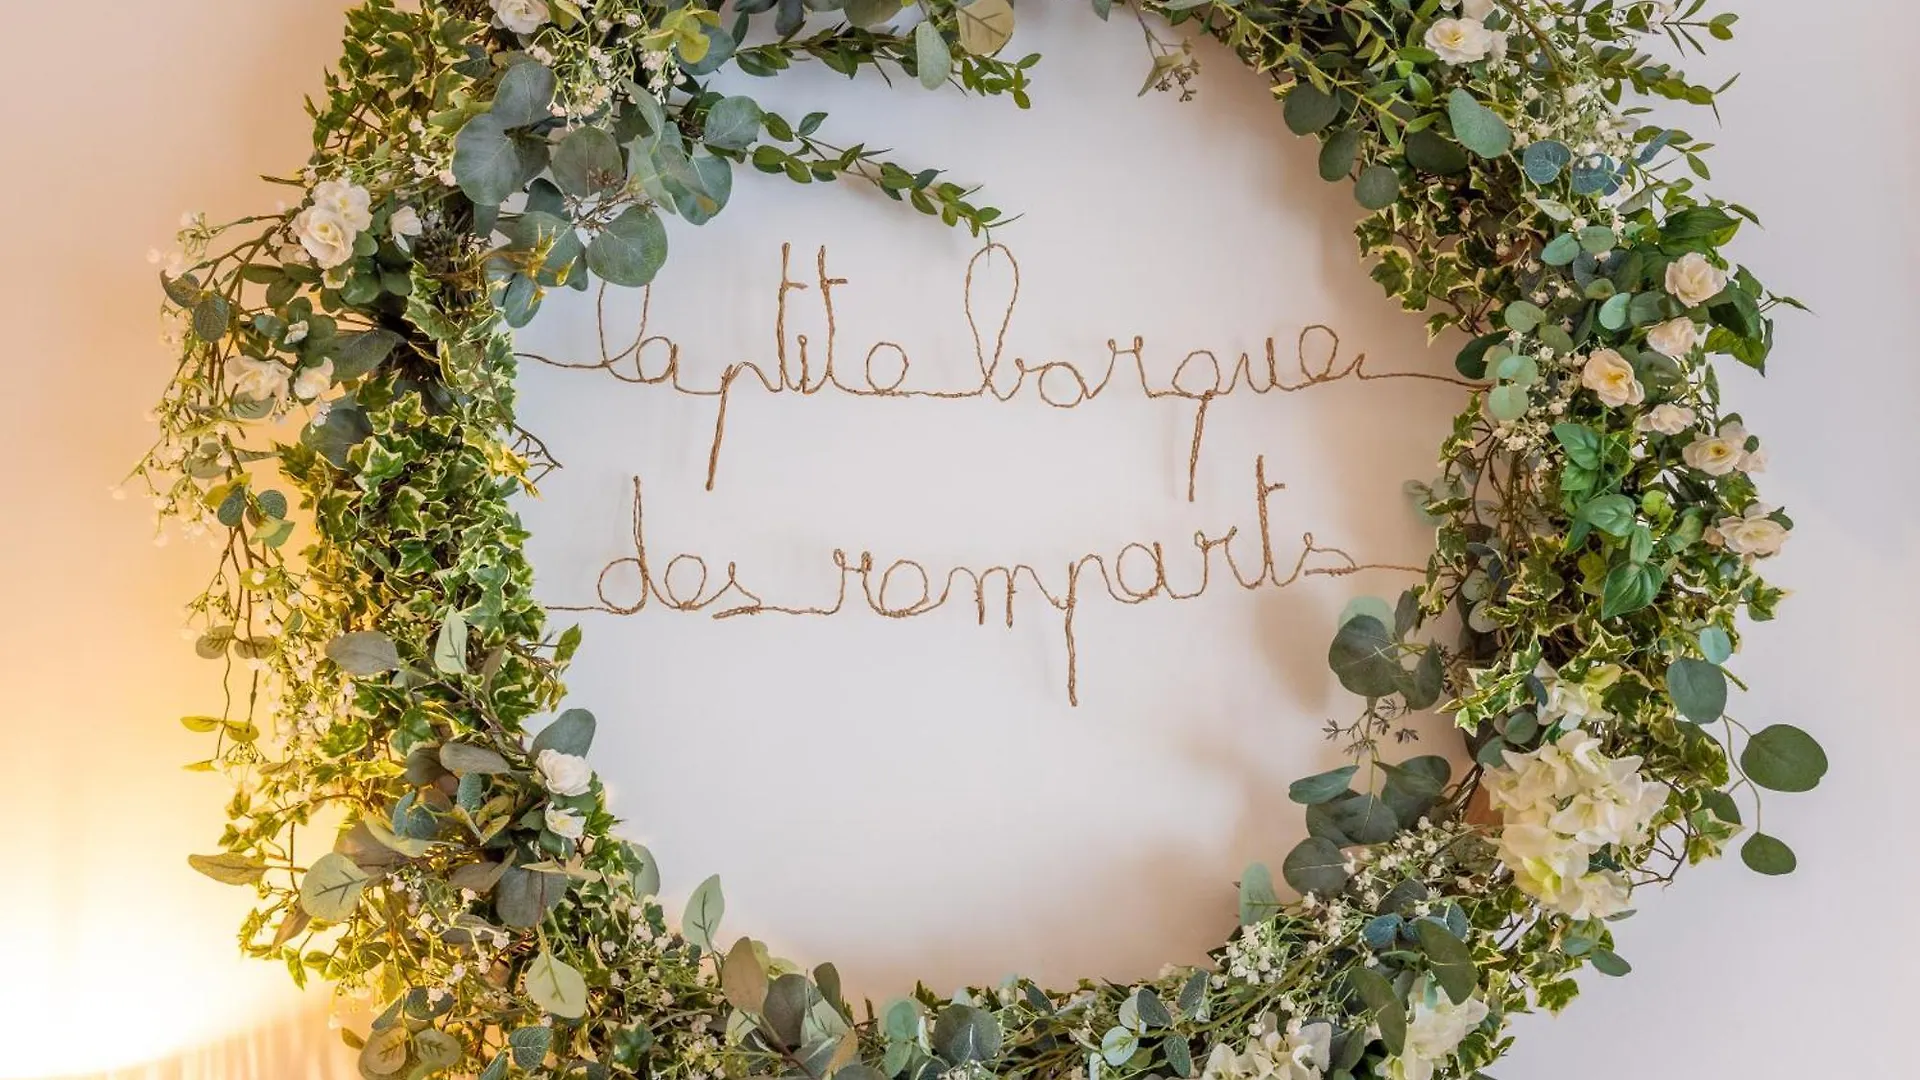 la ptite barque
des remparts